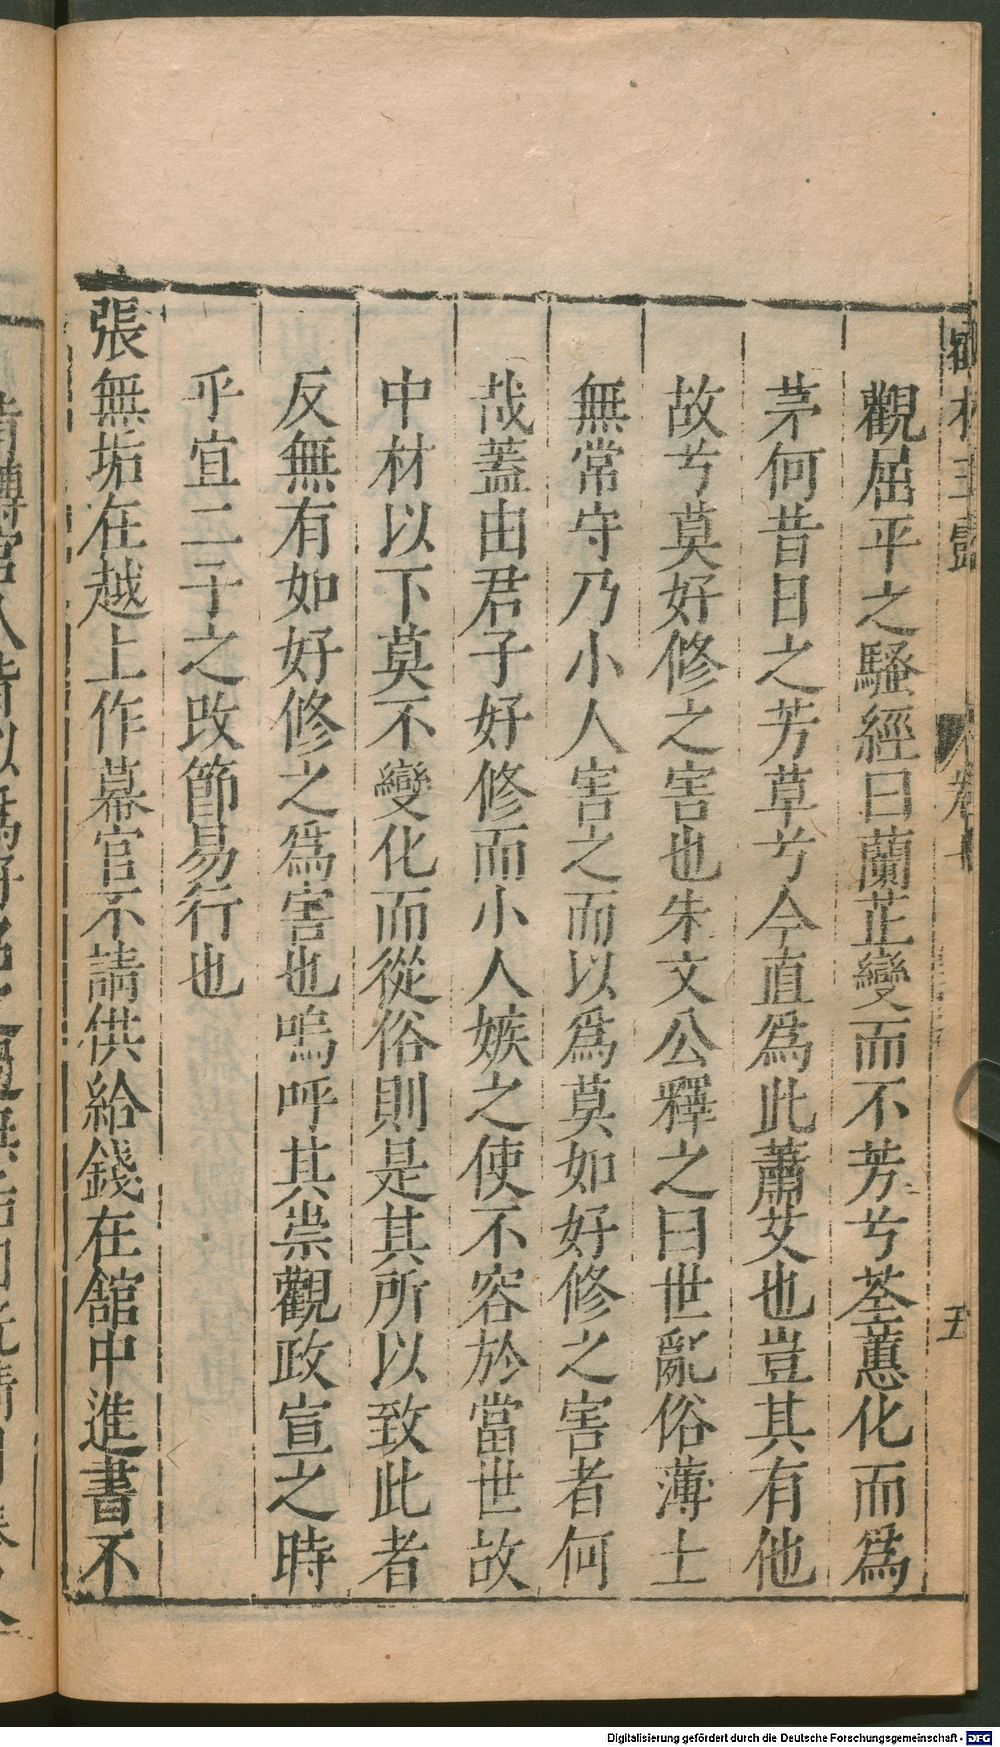 觀屈平之騷經曰蘭芷變而不芳兮荃蕙化而爲
茅何昔日之芳草兮今直爲此蕭艾也豈其有他
故兮莫好修之害也朱文公釋之曰世亂俗薄士
無常守乃小人害之而以爲莫如好修之害者何
哉蓋由君子好修而小人嫉之使不容於當世故
中材以下莫不變化而從俗則是其所以致此者
反無有如好修之爲害也嗚呼其祟觀政宣之時
乎宜二子之改節易行也
張無垢在越上作幕官不請供給錢在舘中進書不
五
Digitalisierung gefördert durch die Deutsche Forschungsgemeinschaft - DFG